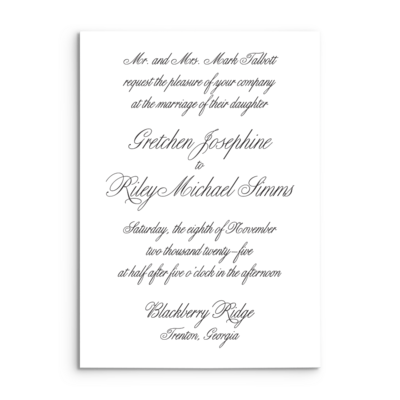 Mr. and Mrs. Mark Talbott
request the pleasure of your company
at the marriage of their daughter
Gretchen Josephine
to
Riley Michael Simms
Saturday, the eighth of November
two thousand twenty-five
at half after five o'clock in the afternoon
Blackberry Ridge
Trenton, Georgia